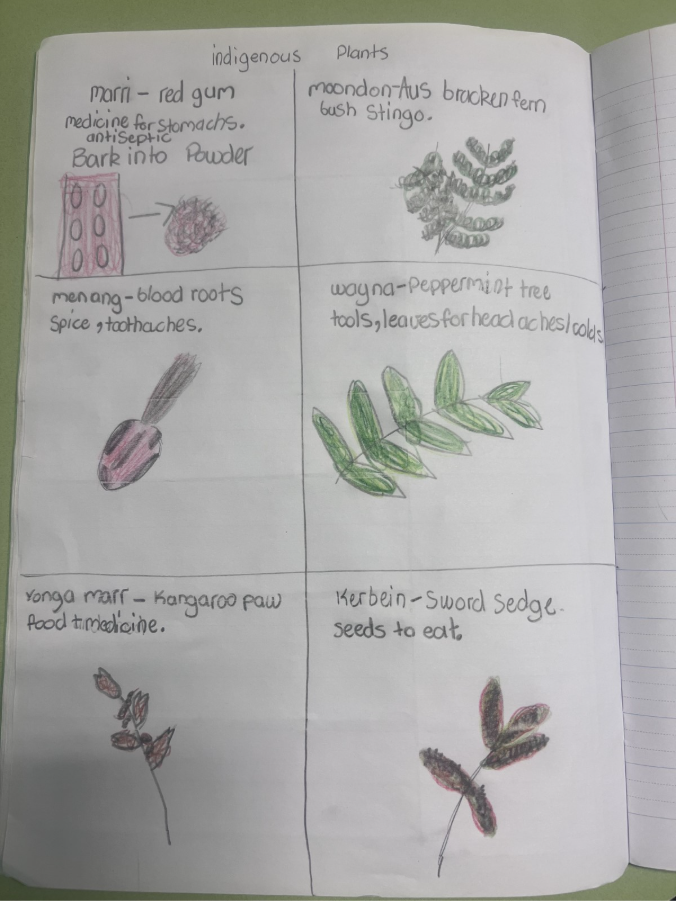 indigenous Plants
marri - red gum
medicine for stomachs.
antiseptic
Bark into Powder
moondon-Aus bracken fern
bush Stingo.
menang-blood roots
Spice, toothaches.
wayna-Peppermint tree
tools, leaves for headaches/colds
Yonga marr - Kangaroo paw
food + medicine.
Kerbein-Sword Sedge.
seeds to eat.